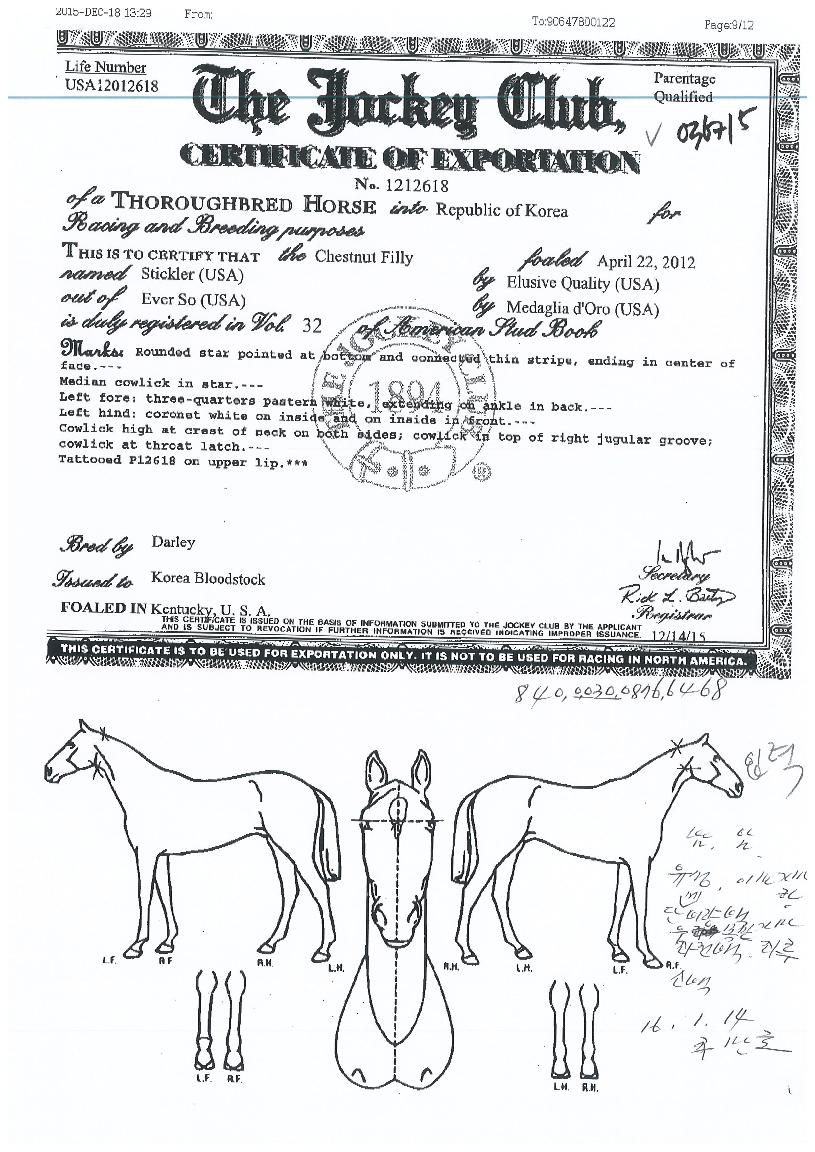 2015-DEC-18 13:29 From: To:90647800122 Page:9/12
Life Number
USA12012618
Parentage
Qualified
The Jockey Club,
CERTIFICATE OF EXPORTATION
No. 1212618
of a THOROUGHBRED HORSE into Republic of Korea for
Racing and Breeding purposes
THIS IS TO CERTIFY THAT the Chestnut Filly foaled April 22, 2012
named Stickler (USA) by Elusive Quality (USA)
out of Ever So (USA) by Medaglia d'Oro (USA)
is duly registered in Vol. 32 of American Stud Book
Marks: Rounded star pointed at bottom and connected thin stripe, ending in center of
face.---
Median cowlick in star.---
Left fore: three-quarters pastern white, extending on ankle in back.---
Left hind: coronet white on inside and on inside in front.---
Cowlick high at crest of neck on both sides; cowlick in top of right jugular groove;
cowlick at throat latch.---
Tattooed P12618 on upper lip.***
THE JOCKEY CLUB
1894
®
Bred by Darley
Issued to Korea Bloodstock
Secretary
Registrar
FOALED IN Kentucky, U. S. A.
THIS CERTIFICATE IS ISSUED ON THE BASIS OF INFORMATION SUBMITTED TO THE JOCKEY CLUB BY THE APPLICANT
AND IS SUBJECT TO REVOCATION IF FURTHER INFORMATION IS RECEIVED INDICATING IMPROPER ISSUANCE. 12/14/15
THIS CERTIFICATE IS TO BE USED FOR EXPORTATION ONLY. IT IS NOT TO BE USED FOR RACING IN NORTH AMERICA.
840,0030,0876,6468
입력
L.F. R.F R.H. L.H. R.H. L.H. L.F. R.F.
16. 1. 14
L.F. R.F. L.H. R.H.